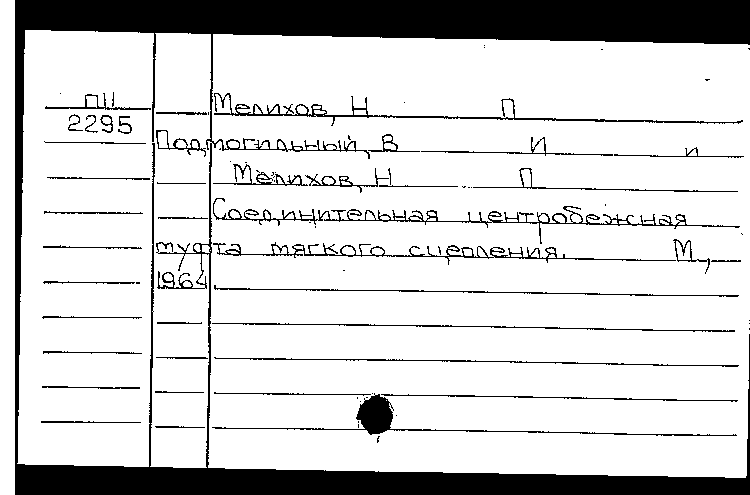 ПЦ
2295
Мелихов, Н П
Подмогильный, В И и
Мелихов, Н П
Соединительная центробежная
муфта мягкого сцепления. М.,
1964.